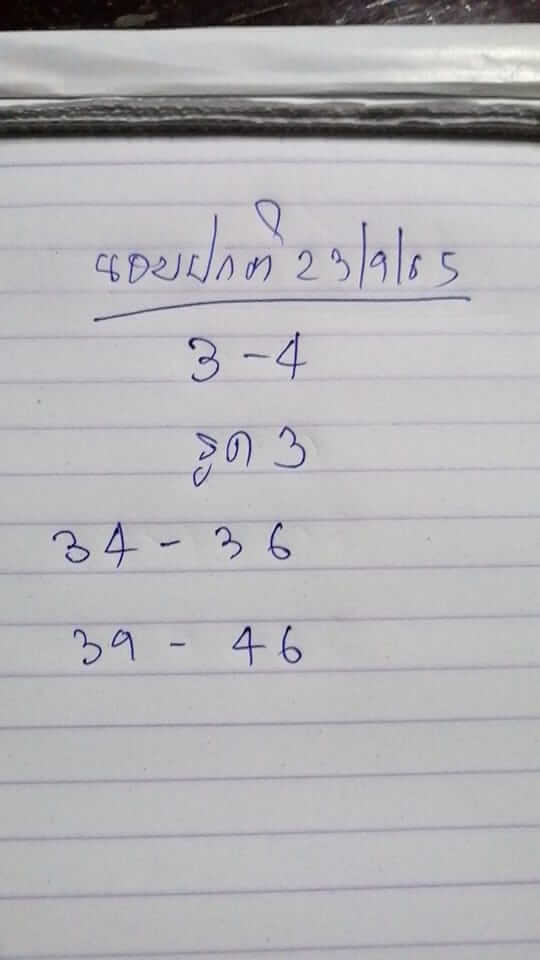 ฮอยปกติ 23/9/65
3-4
รูด 3
34-36
39-46